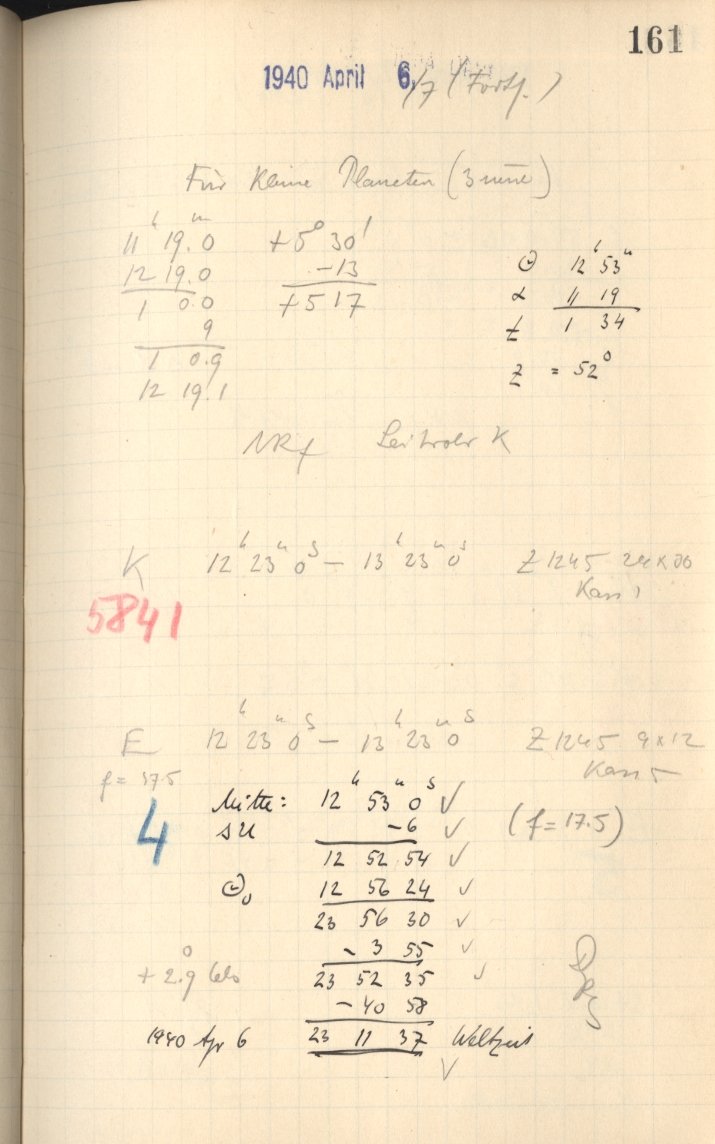 161
1940 April 6./7 (Forts.)
Für Kleine Planeten (3 neue)
11ʰ 19.0ᵐ +5° 30'
12 19.0 -13
1 0.0 +5 17
9
1 0.9
12 19.1
☉ 12ʰ 53ᵐ
α 11 19
t 1 34
z = 52°
Leitrohr K
K 12ʰ 23ᵐ 0ˢ — 13ʰ 23ᵐ 0ˢ Z 1245 24x30
Kass 1
5841
E 12ʰ 23ᵐ 0ˢ — 13ʰ 23ᵐ 0ˢ Z 1245 9x12
f = 17.5 Kass 5
4
Mitte: 12ʰ 53ᵐ 0ˢ ✓
SU -6 ✓ (f = 17.5)
12 52 54 ✓
☉₀ 12 56 24 ✓
23 56 30 ✓
- 3 55 ✓
+ 2.9° Cels 23 52 35 ✓
- 40 58
1940 Apr 6 23 11 37 Weltzeit
✓